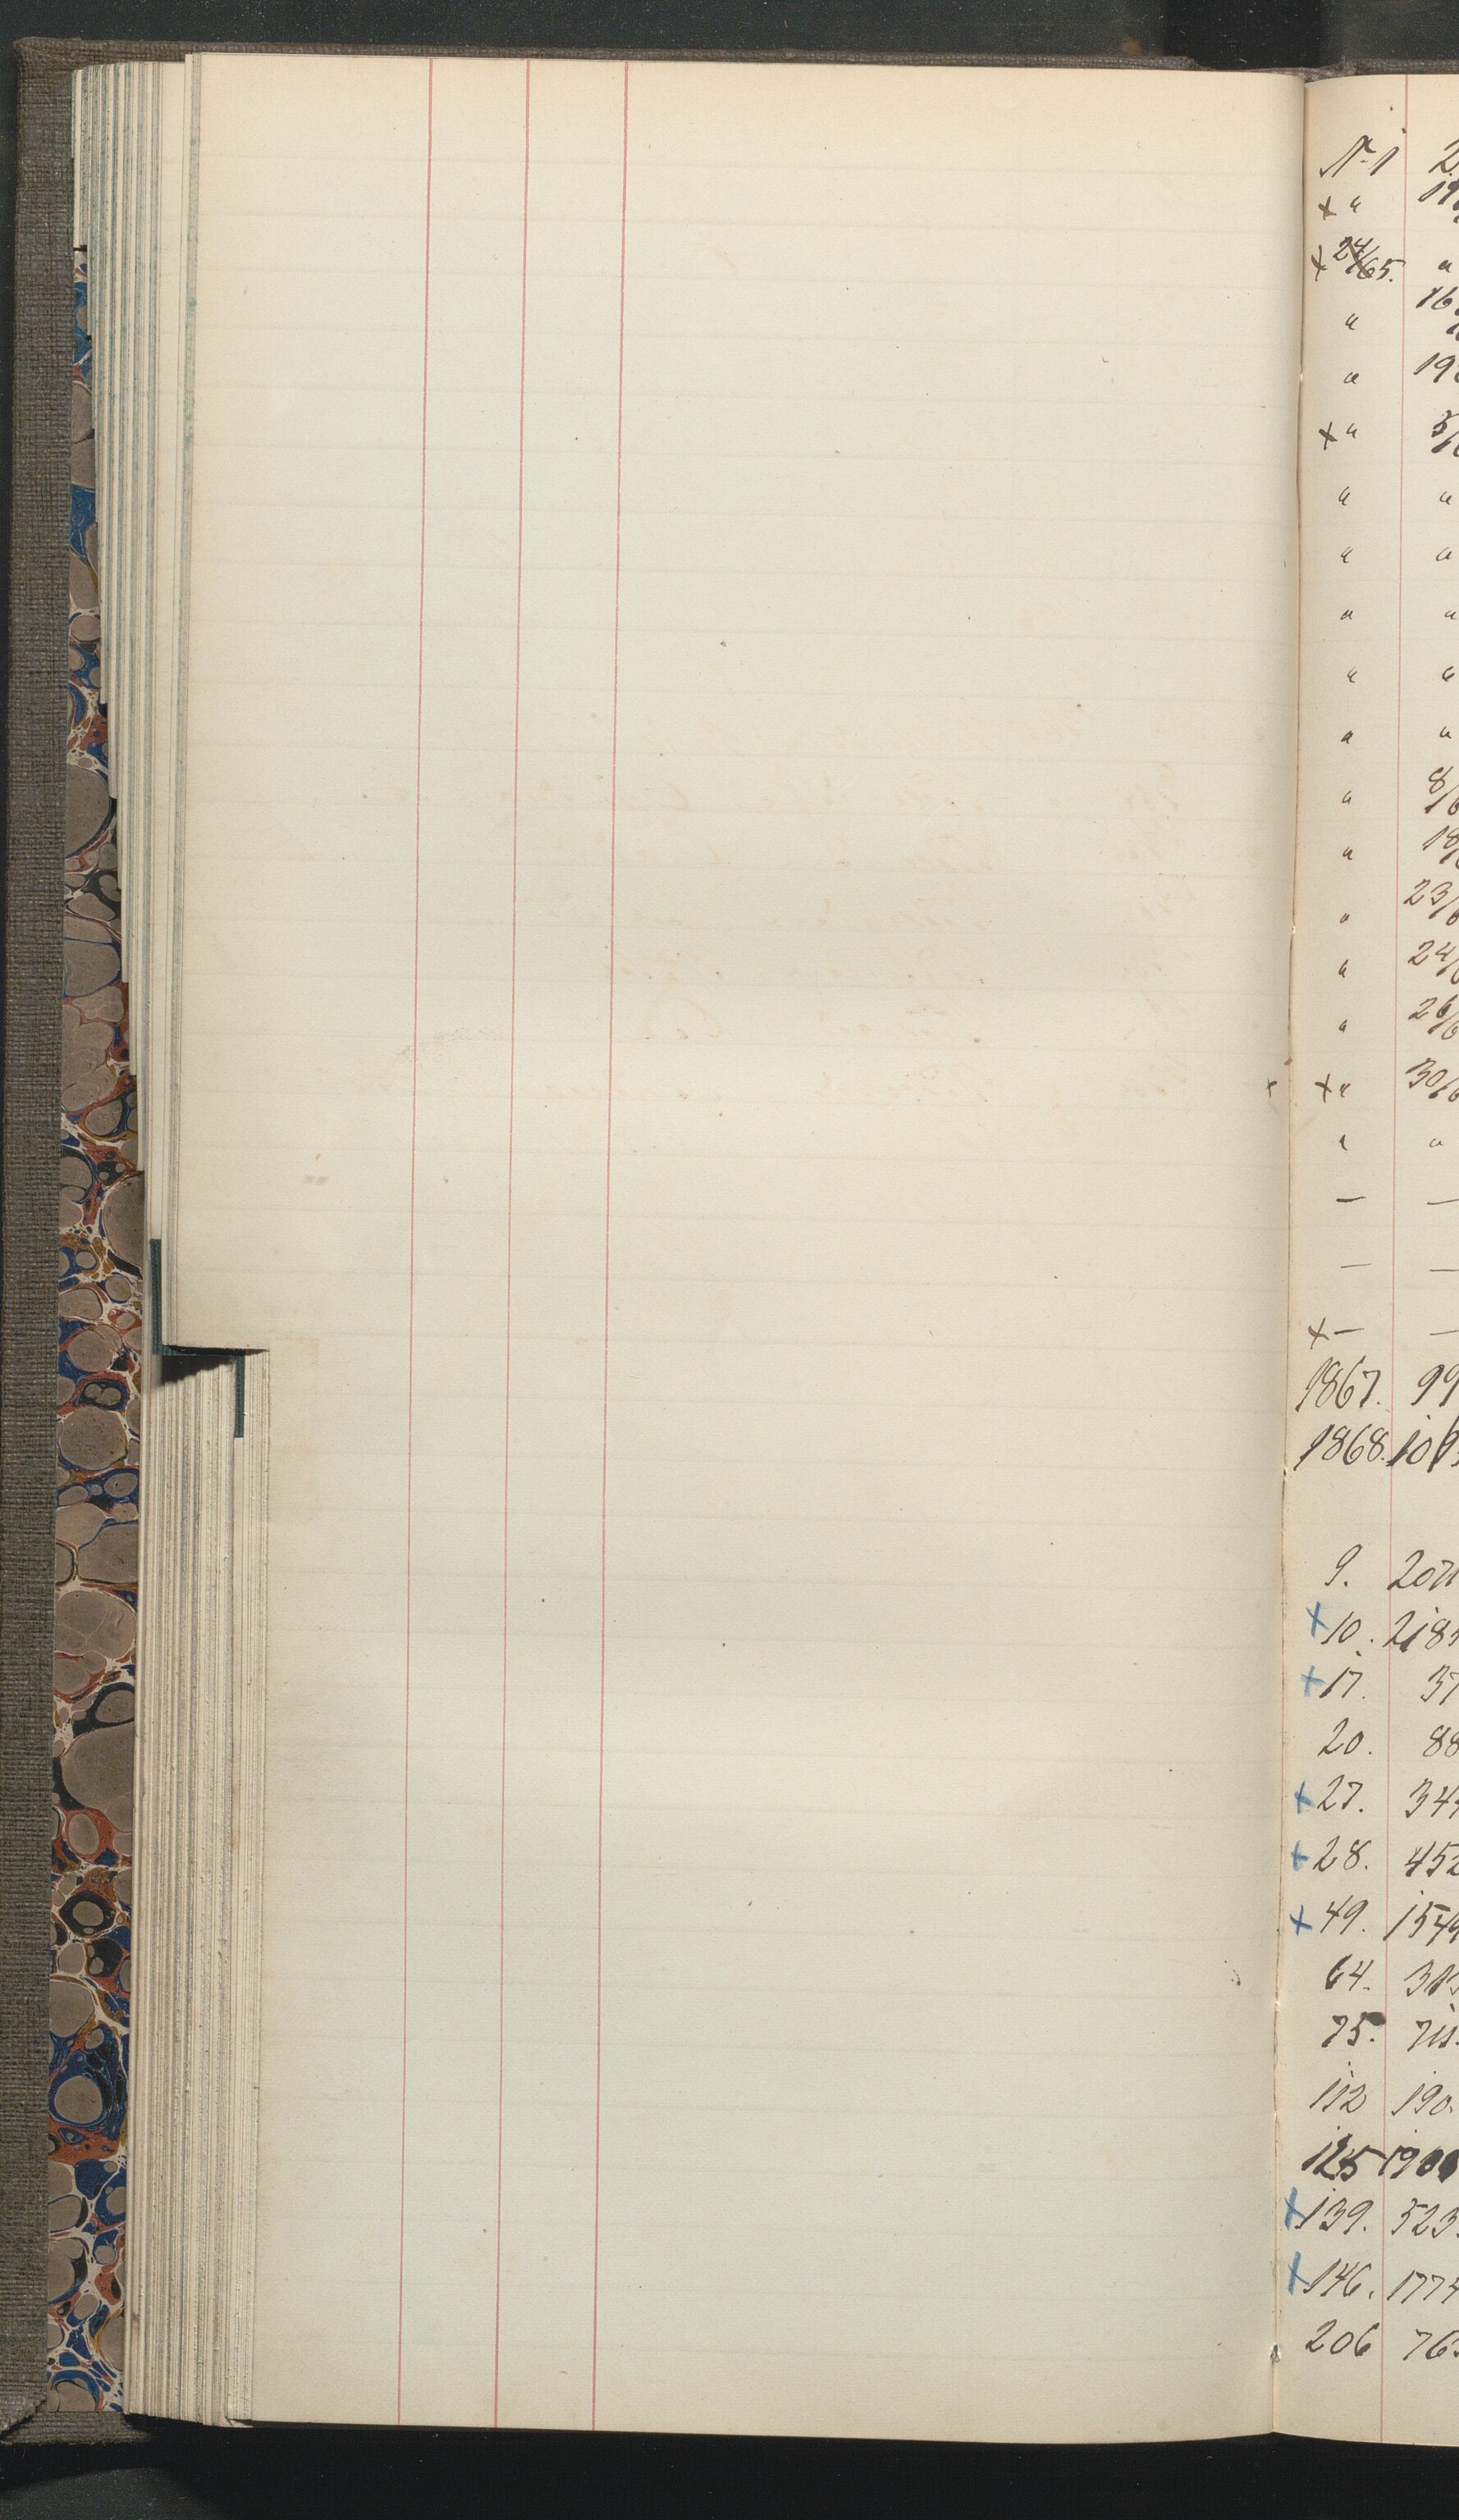 N. 1 2
× " 19
× 24/65. "
" 16
" 19
× " 5/
" "
" "
" "
" "
" "
" 8/6
" 18/
" 23/6
" 24/6
" 26/6
× " 30/6
" "
— —
— —
× — —
1867. 99
1868. 10
9. 207
× 10. 218
× 17. 37
20. 88
× 27. 344
× 28. 452
× 49. 1549
64. 313
75. 711.
112 190.
125 190
× 139. 523.
× 146. 1774
206 763